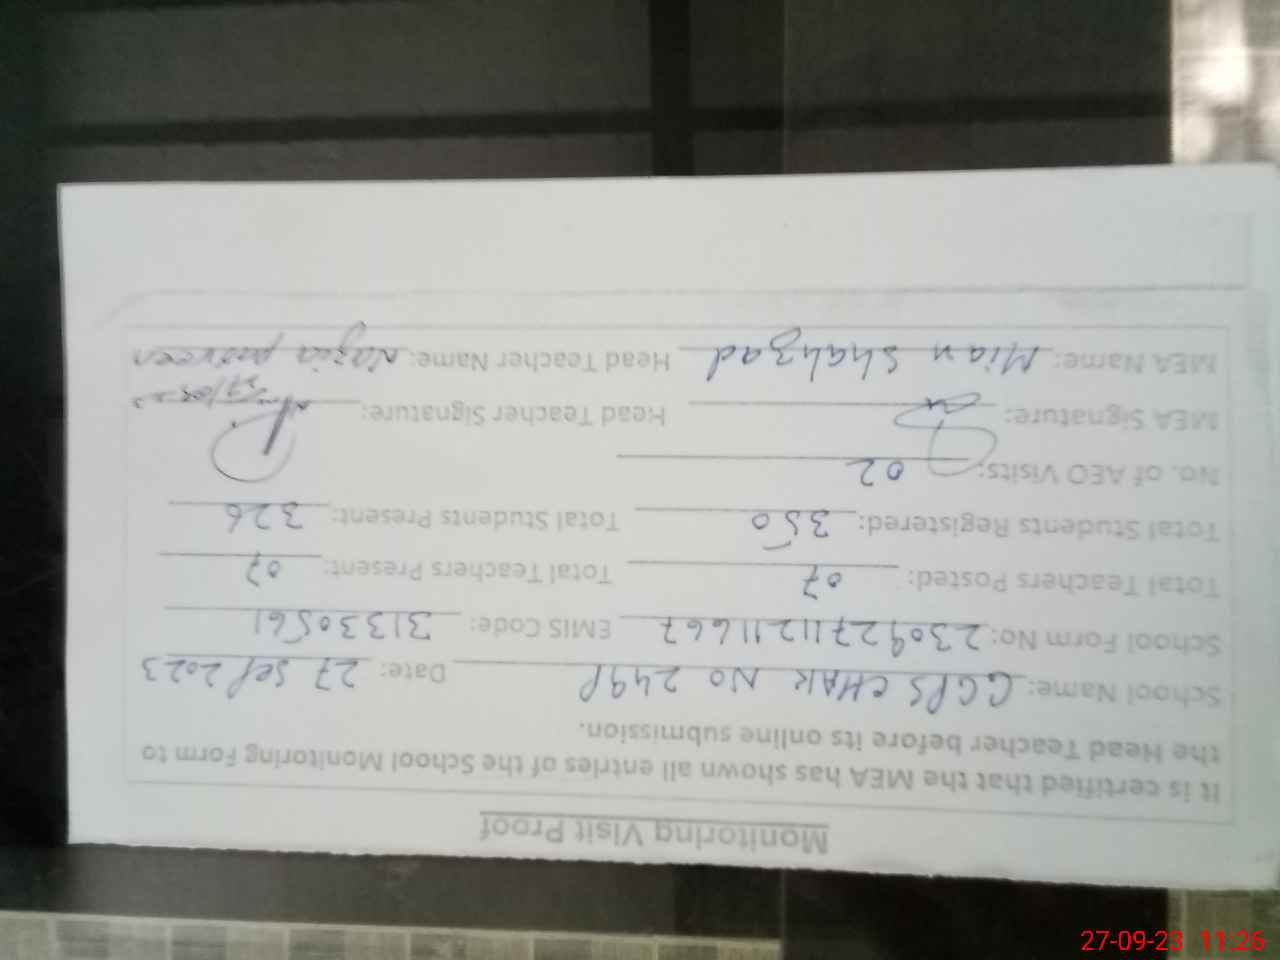 Monitoring Visit Proof
It is certified that the MEA has shown all entries of the School Monitoring Form to
the Head Teacher before its online submission.
School Name: GGPS CHAK NO 249P Date: 27 Sep 2023
School Form No: 23092711211667 EMIS Code: 31330561
Total Teachers Posted: 07 Total Teachers Present: 07
Total Students Registered: 350 Total Students Present: 326
No. of AEO Visits: 02
MEA Signature: Head Teacher Signature:
MEA Name: Mian Shahzad Head Teacher Name: Nazia parveen
27-09-23 11:26